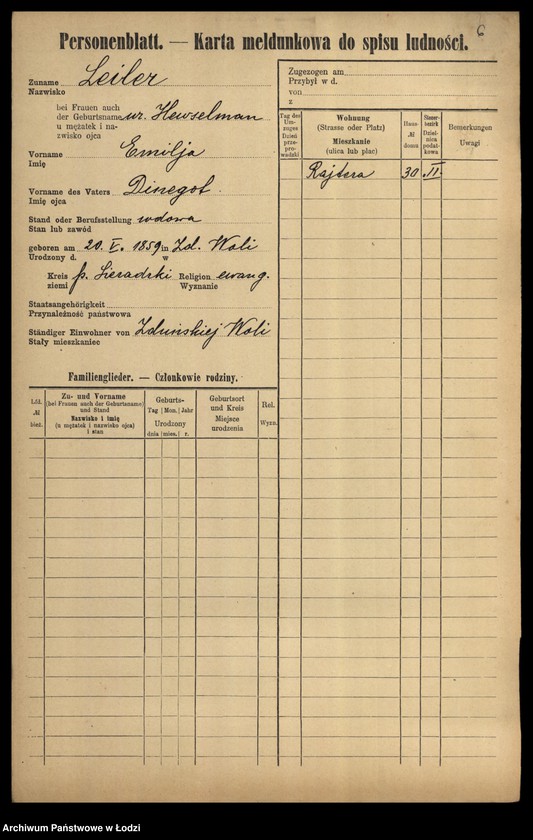 6
Personenblatt. — Karta meldunkowa do spisu ludności.
Zuname Leiler
Nazwisko
bei Frauen auch
der Geburtsname ur. Hewselman
u mężatek i na-
zwisko ojca
Vorname Emilja
Imię
Vorname des Vaters Dinegot
Imię ojca
Stand oder Berufsstellung wdowa
Stan lub zawód
geboren am 20. V. 1859 in Zd. Woli
Urodzony d. w
Kreis p. Sieradzki Religion ewang.
ziemi Wyznanie
Staatsangehörigkeit
Przynależność państwowa
Ständiger Einwohner von Zduńskiej Woli
Stały mieszkaniec
Familienglieder. — Członkowie rodziny.
Lfd.
№
bież.
Zu- und Vorname
(bei Frauen auch der Geburtsname)
und Stand
Nazwisko i imię
(u mężatek i nazwisko ojca)
i stan
Geburts-
Tag Mon. Jahr
Urodzony
dnia mies. r.
Geburtsort
und Kreis
Miejsce
urodzenia
Rel.
Wyzn.
Zugezogen am
Przybył w d.
von
z
Tag des
Um-
zuges
Dzień
prze-
pro-
wadzki
Wohnung
(Strasse oder Platz)
Mieszkanie
(ulica lub plac)
Haus-
№
domu
Steuer-
bezirk
Dziel-
nica
podat-
kowa
Bemerkungen
Uwagi
Rajtera 30 II.
Archiwum Państwowe w Łodzi